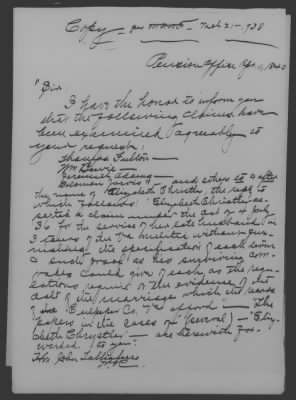 Copy - for
Pension Office
"Sir.
I have the honor to inform you
that the following claims have
been examined agreeably to
your request;
Thomas Fulton -
Wm
Jeremiah Adams -
Solomon - and others & after
the name of Elizabeth Christler, the rept to
which follows: "Elizabeth Christler as-
serted a claim under the act of 4 July
36 for the service of her late husband in
3 tours of the Va militia, without fur-
nishing the specification of each tour
& such proof as his surviving com-
rades could give of each, as the regu-
lations require or the evidence of the
date of the marriage which the records
of Culpeper Co. Va afford" - "The
papers in the cases of (several) - "Eliz-
abeth Chrystler" - are herewith for-
warded to you.
Hon John Taliaferro